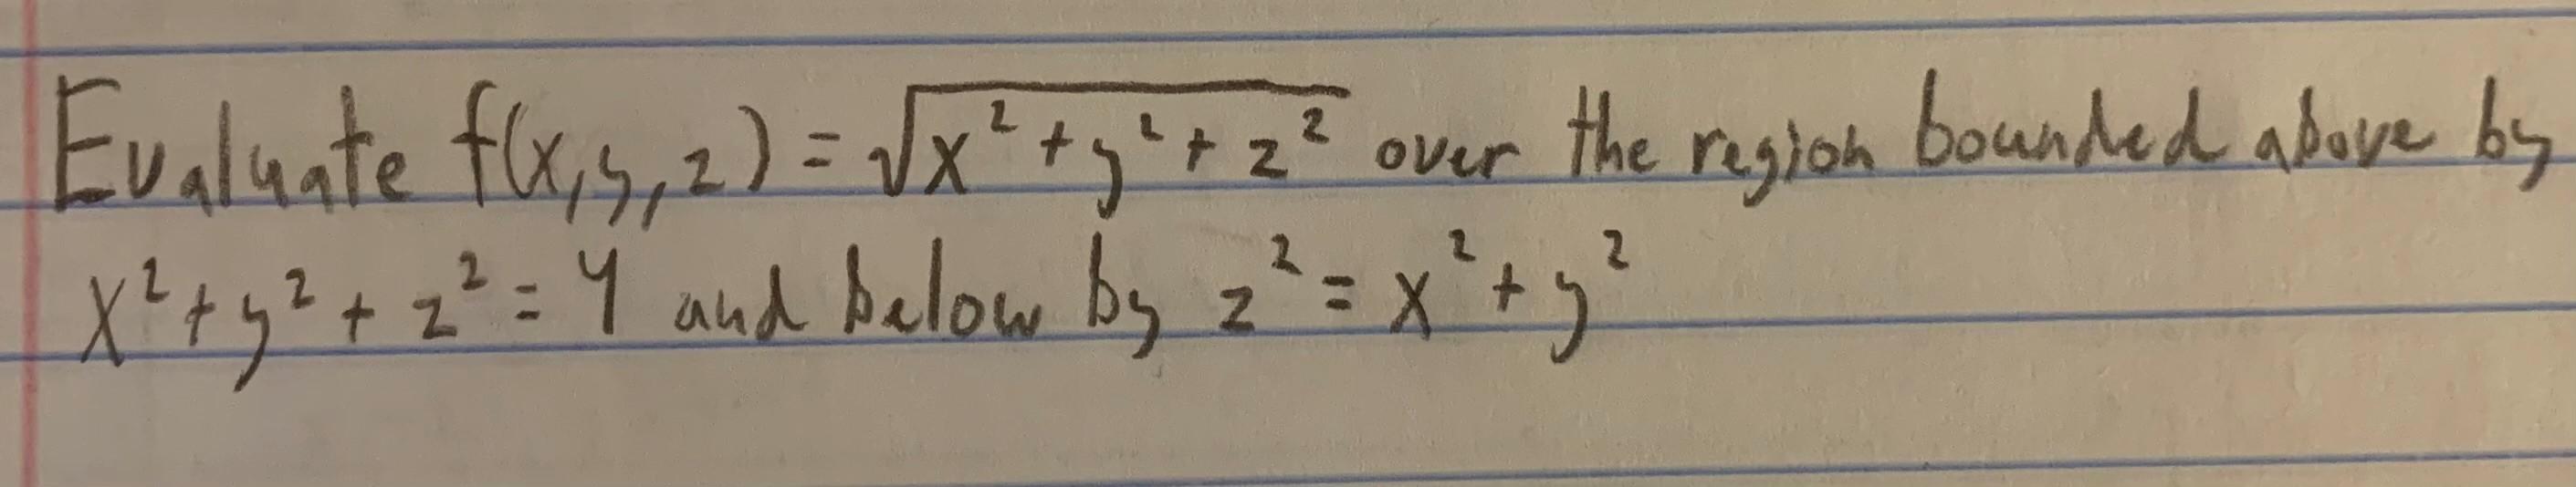 Evaluate f(x,y,z) = √(x² + y² + z²) over the region bounded above by
x² + y² + z² = 4 and below by z² = x² + y²